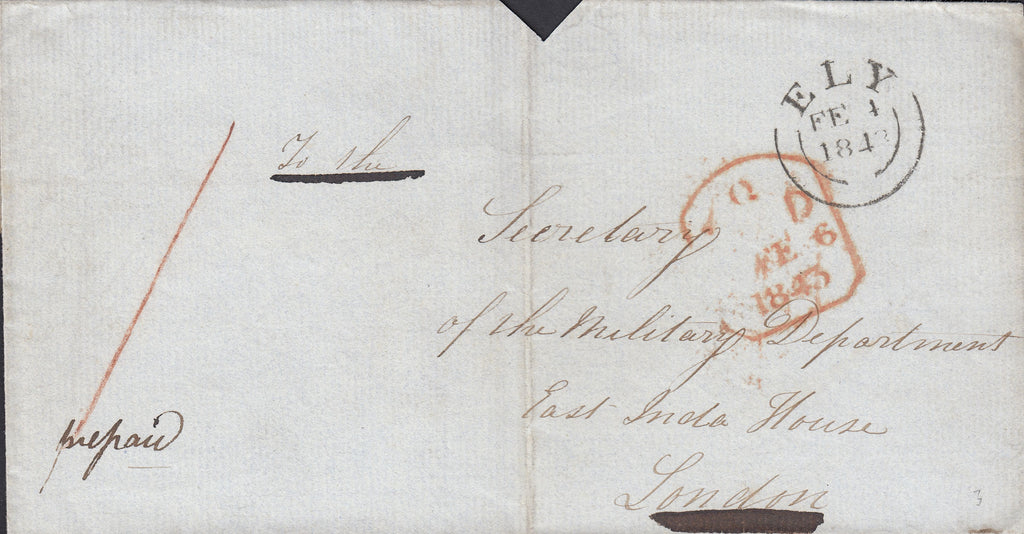 ELY
FE 4
1843
To the
Q D
FE 6
1843
Secretary
of the Military Department
East Inda House
London
prepaid
3